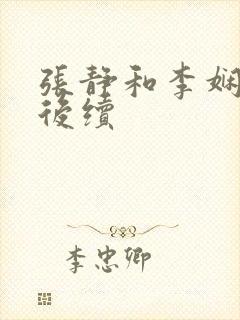 張靜和李娴
後續
李忠卿